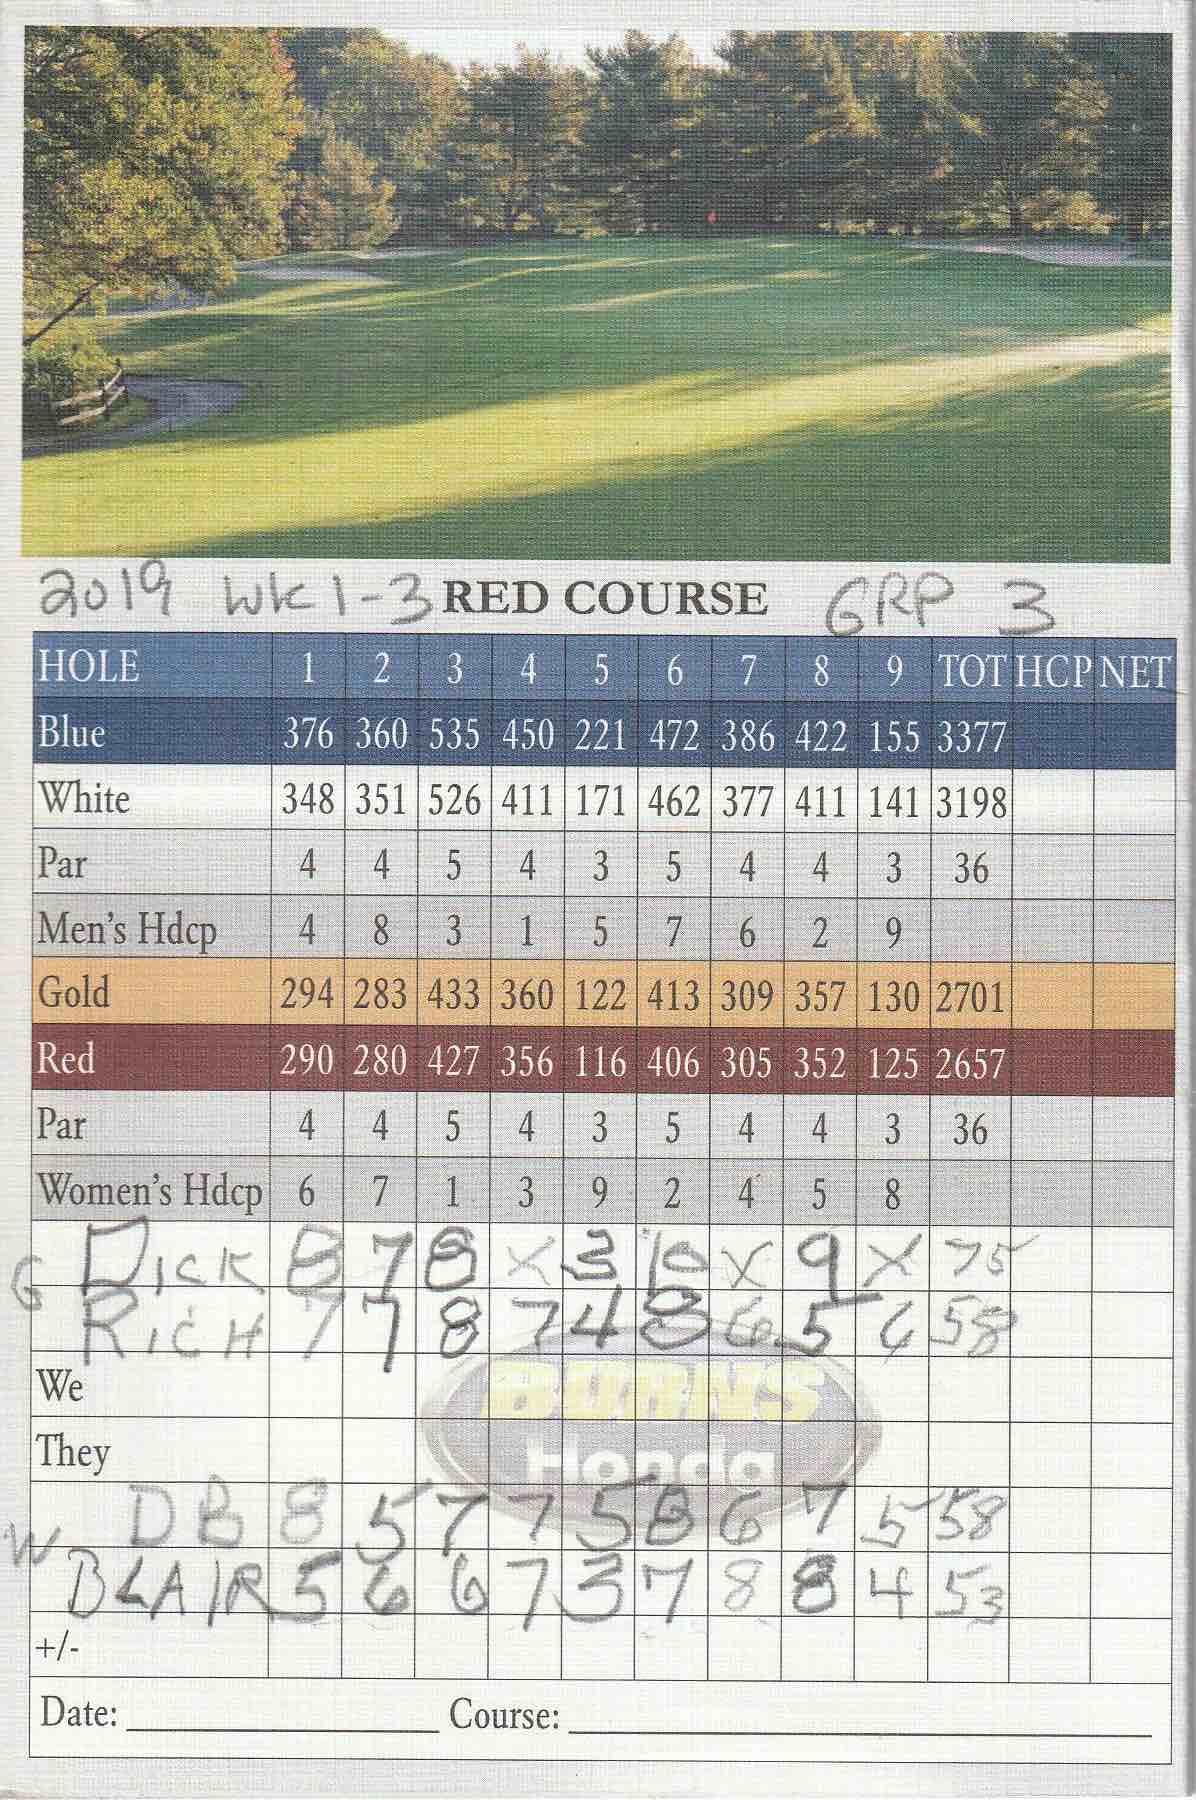 2019 WK 1-3 RED COURSE GRP 3
HOLE 1 2 3 4 5 6 7 8 9 TOT HCP NET
Blue 376 360 535 450 221 472 386 422 155 3377
White 348 351 526 411 171 462 377 411 141 3198
Par 4 4 5 4 3 5 4 4 3 36
Men's Hdcp 4 8 3 1 5 7 6 2 9
Gold 294 283 433 360 122 413 309 357 130 2701
Red 290 280 427 356 116 406 305 352 125 2657
Par 4 4 5 4 3 5 4 4 3 36
Women's Hdcp 6 7 1 3 9 2 4 5 8
G DICK 8 7 8 X 3 10 X 9 X 75
RICH 7 7 8 7 4 8 6 5 6 58
We
BURNS
They
Honda
W DB 8 5 7 7 5 8 6 7 5 58
BLAIR 5 6 6 7 3 7 8 8 4 53
+/-
Date: Course: